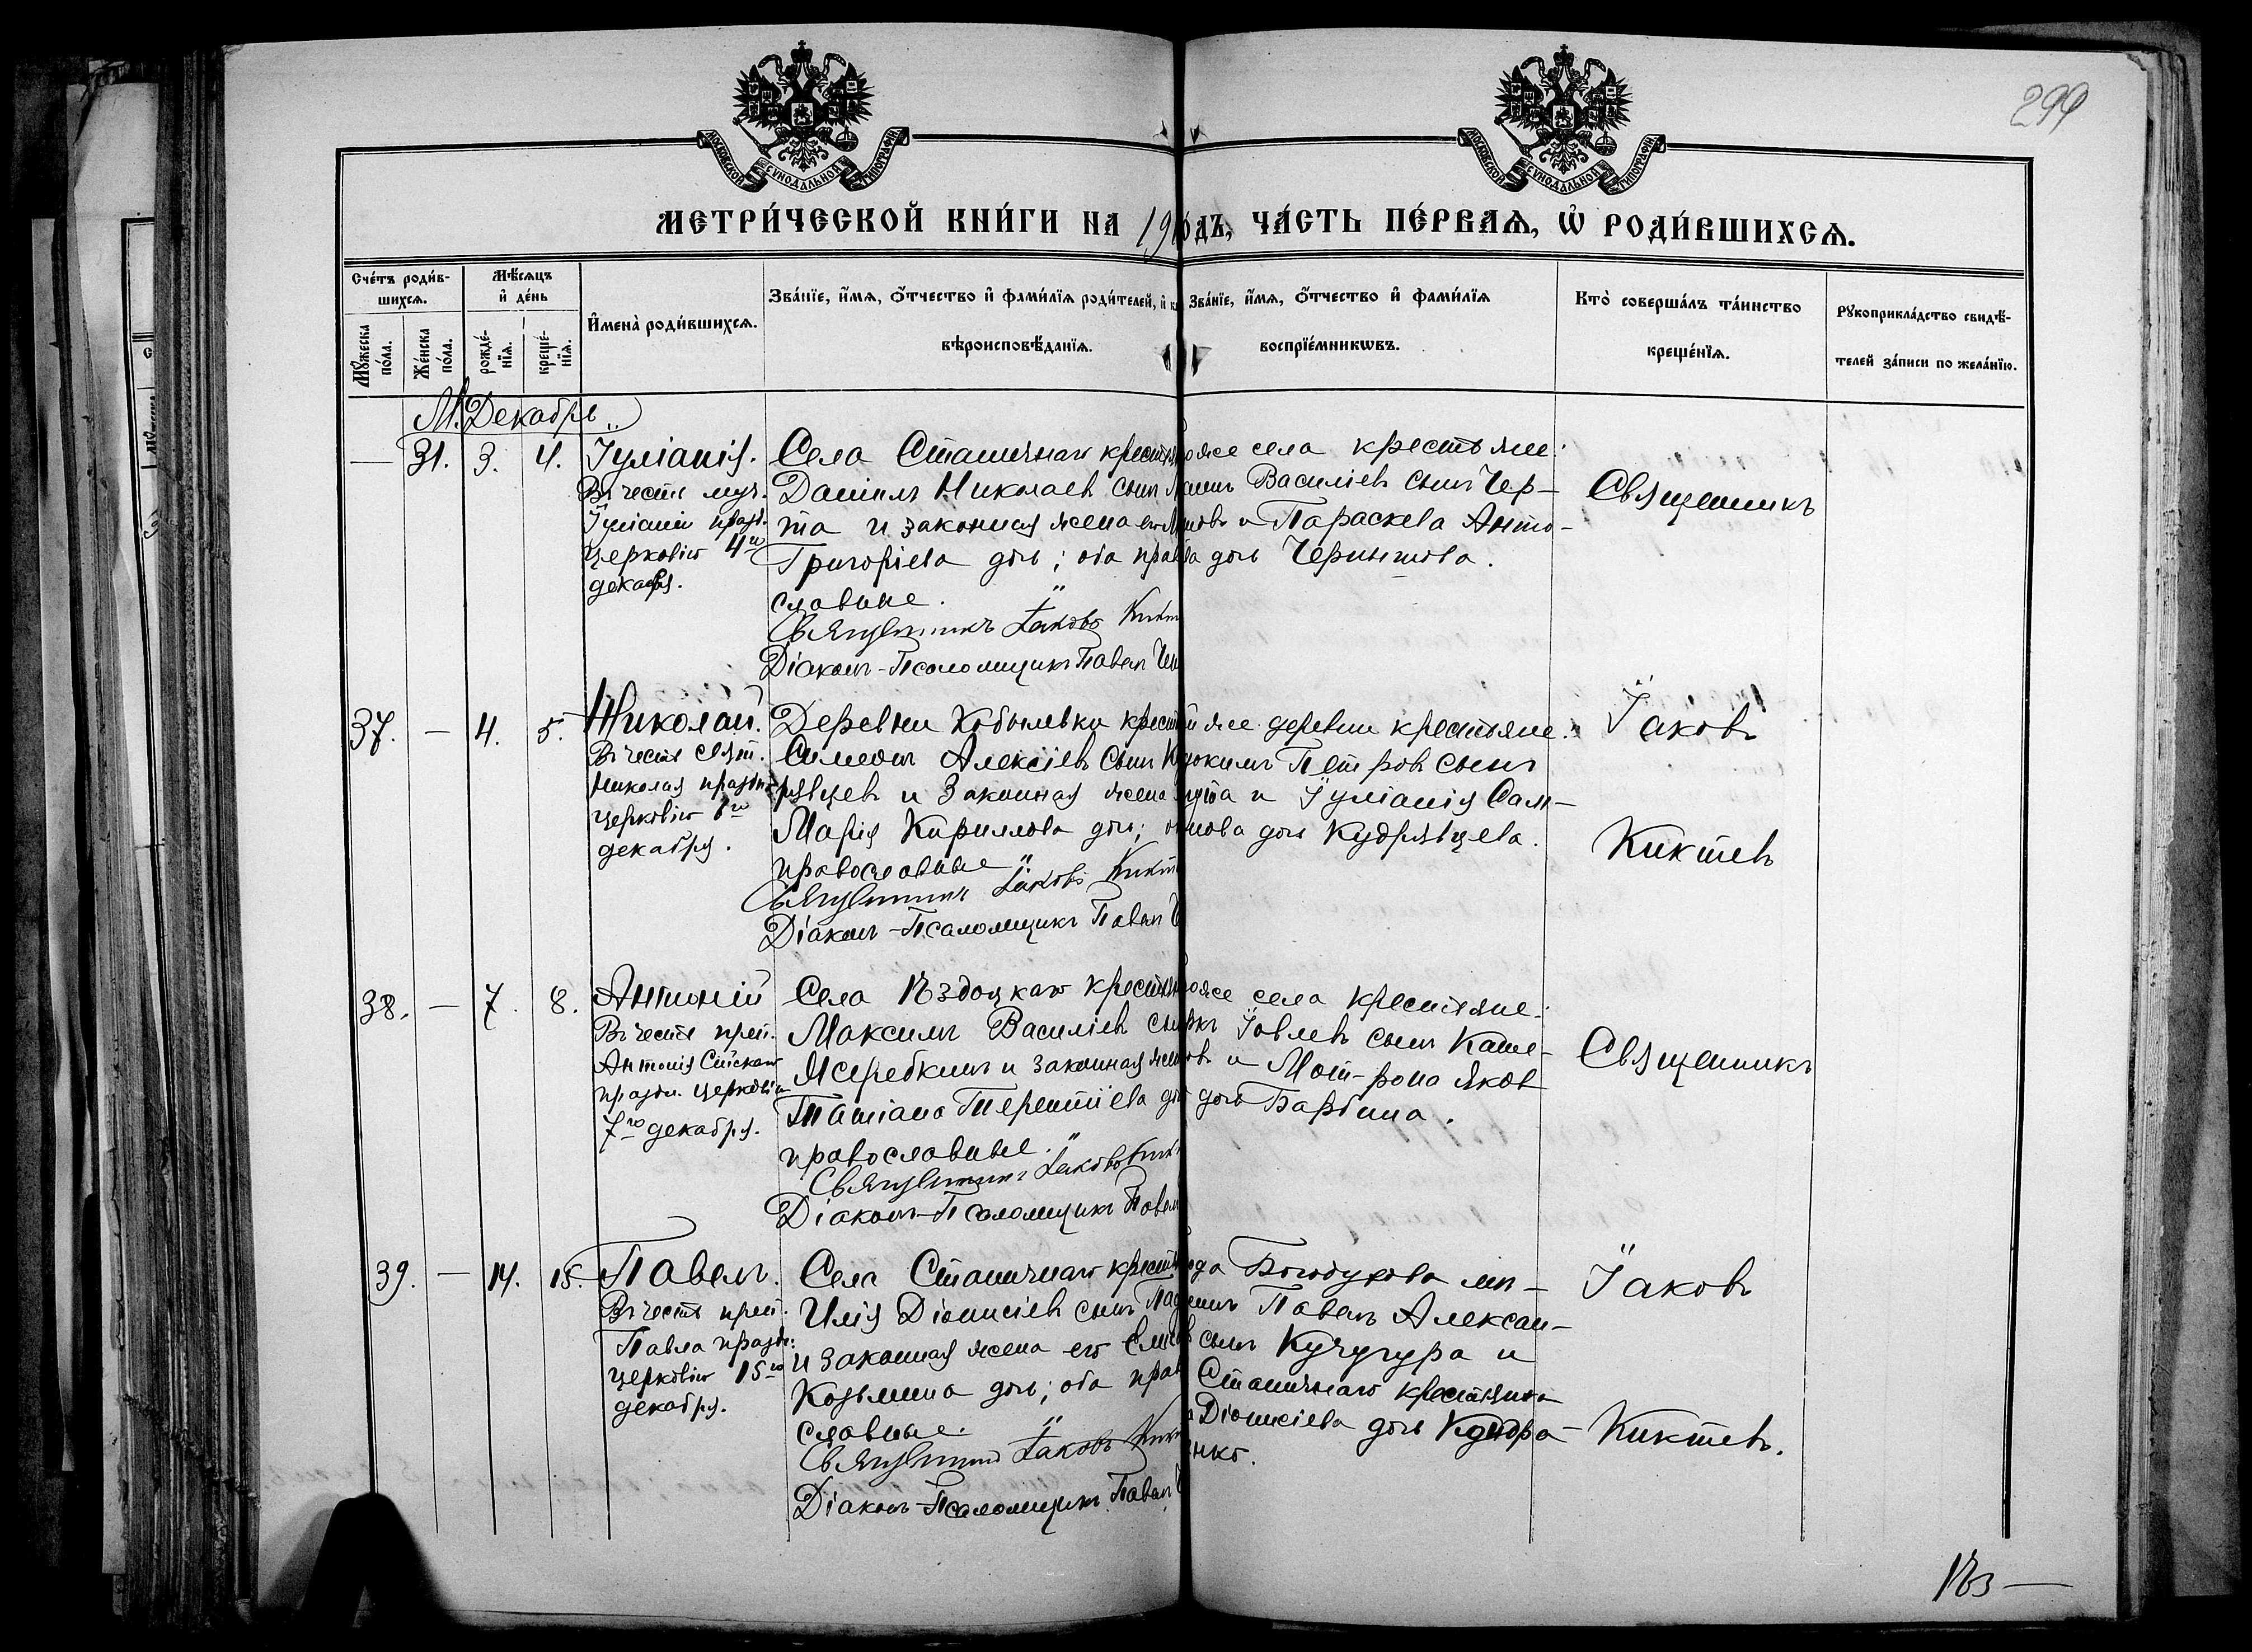 299
МОСКОВСКОЙ СѴНОДАЛЬНОЙ ТИПОГРАФІИ
МОСКОВСКОЙ СѴНОДАЛЬНОЙ ТИПОГРАФІИ
МЕТРИ́ЧЕСКОЙ КНИ́ГИ НА 19
ОДЪ, ЧА́СТЬ ПЕ́РВАѦ, Ѽ РОДИ́ВШИХСѦ.
Сче́тъ роди́в-
шихсѧ.
Мꙋ́жеска
по́ла.
Же́нска
по́ла.
Мѣ́сѧцъ
и҆ де́нь
рожде́-
нїѧ.
креще́-
нїѧ.
И҆мена̀ роди́вшихсѧ.
Зва́нїе, и҆́мѧ, ѻ҆́тчество и҆ фами́лїѧ роди́телей, и҆
вѣроисповѣ́данїѧ.
Зва́нїе, и҆́мѧ, ѻ҆́тчество и҆ фами́лїѧ
воспрїе́мникѡвъ.
Кто̀ соверша́лъ та́инство
креще́нїѧ.
Рꙋкоприкла́дство свидѣ́-
телей за́писи по жела́нїю.
М. Декабрь
— 31. 3. 4.
Іуліанія.
Въ честь муч.
Іуліаніи празд.
церковію 4го
декабря.
Села Станичнаго крестья
Даніилъ Николаевъ сынъ
та и законная жена его
Григоріева дочь; оба право
славные.
Священникъ Іаковъ Кикт
Діаконъ-Псаломщикъ Павелъ
оже села крестьяне:
Василіевъ сынъ Чер-
и Параскева Анто-
ва дочь Чернятова.
Священникъ
37. — 4. 5.
Николай.
Въ честь свят.
Николая праздн.
церковію 6го
декабря.
Деревни Кобылевки крест
Симеонъ Алексіевъ сынъ Ку
рявцевъ и законная жена
Марія Кириллова дочь; о
православные
Священникъ Іаковъ Кикт
Діаконъ-Псаломщикъ Павелъ
й же деревни крестьяне:
Петровъ сынъ
и Іуліанія Сам-
нова дочь Кудрявцева.
Іаковъ
Киктевъ
38. — 7. 8.
Антоній
Въ честь преп.
Антонія Сійскаго
праздн. церковію
7го декабря.
Села Ѣздоцкаго крестья
Максимъ Василіевъ сы
Жеребкинъ и законная жен
Татіана Терентіева до
православные.
Священникъ Іаковъ Кикт
Діаконъ-Псаломщикъ Павел
оже села крестьяне:
Іовлевъ сынъ Каше-
и Мот-рона Яков
дочь Барбина.
Священникъ
39. — 14. 15.
Павелъ.
Въ честь преп.
Павла праздн:
церковію 15го
декабря.
Села Станичнаго крест
Илія Діонисіевъ сынъ
и законная жена его
Козьмина дочь; оба прав
славные.
Священникъ Іаковъ Кикт
Діаконъ-Псаломщикъ Павел
ода Богодухова мѣ-
Павелъ Алексан-
сынъ Кучугура и
Станичнаго крестьянка
Діонисіева дочь Кондра-
енко.
Іаковъ
Киктевъ.